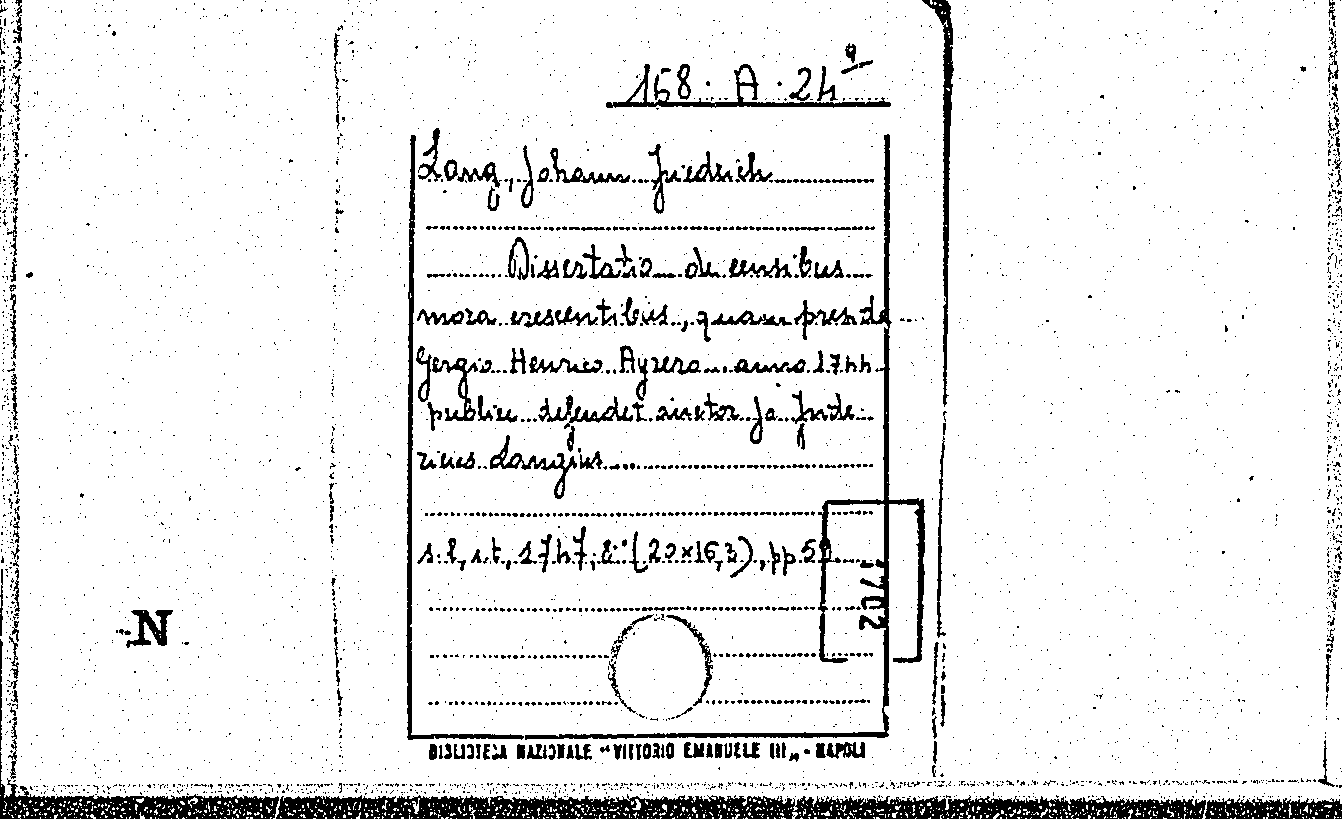 168 · A · 24 9
Lang, Johann Friedrich
Dissertatio de censibus
mora crescentibus, quam preside
Gergio Henrico Ayrero... anno 1744
publice defendet auctor Jo Fride-
ricus Langius...
s.l., s.t., 1747, 8° (20x16,3), pp
1702
N
BIBLIOTECA NAZIONALE "VITTORIO EMANUELE III„ - NAPOLI